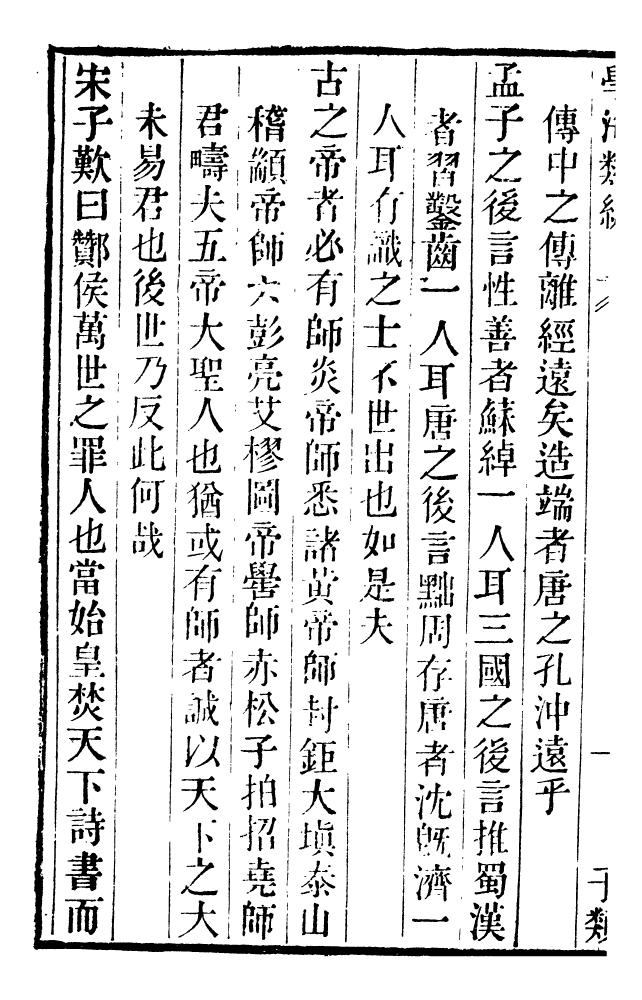 學海類編
子類
傳中之傳離經遠矣造端者唐之孔沖遠乎
孟子之後言性善者蘇綽一人耳三國之後言推蜀漢
者習鑿齒一人耳唐之後言黜周存唐者沈旣濟一
人耳有識之士不世出也如是夫
古之帝者必有師炎帝師悉諸黃帝師封鉅大塡泰山
稽顓帝師六彭亮艾樛圖帝嚳師赤松子拍招堯師
君疇夫五帝大聖人也猶或有師者誠以天下之大
未易君也後世乃反此何哉
宋子歎曰酇侯萬世之罪人也當始皇焚天下詩書而